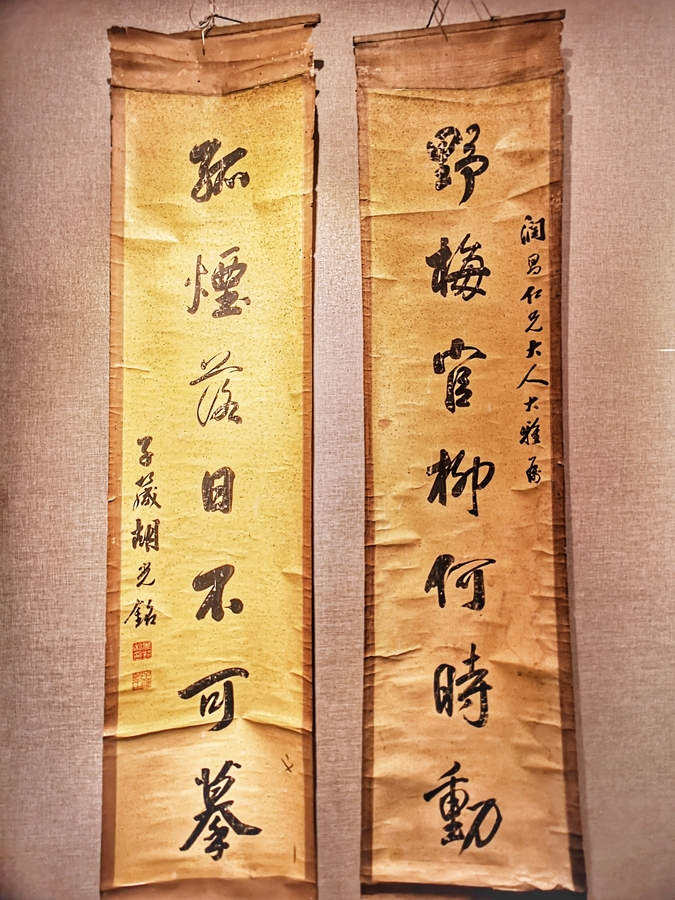 潤昌仁兄大人大雅屬
野梅官柳何時動
孤煙落日不可摹
子箴胡光銘